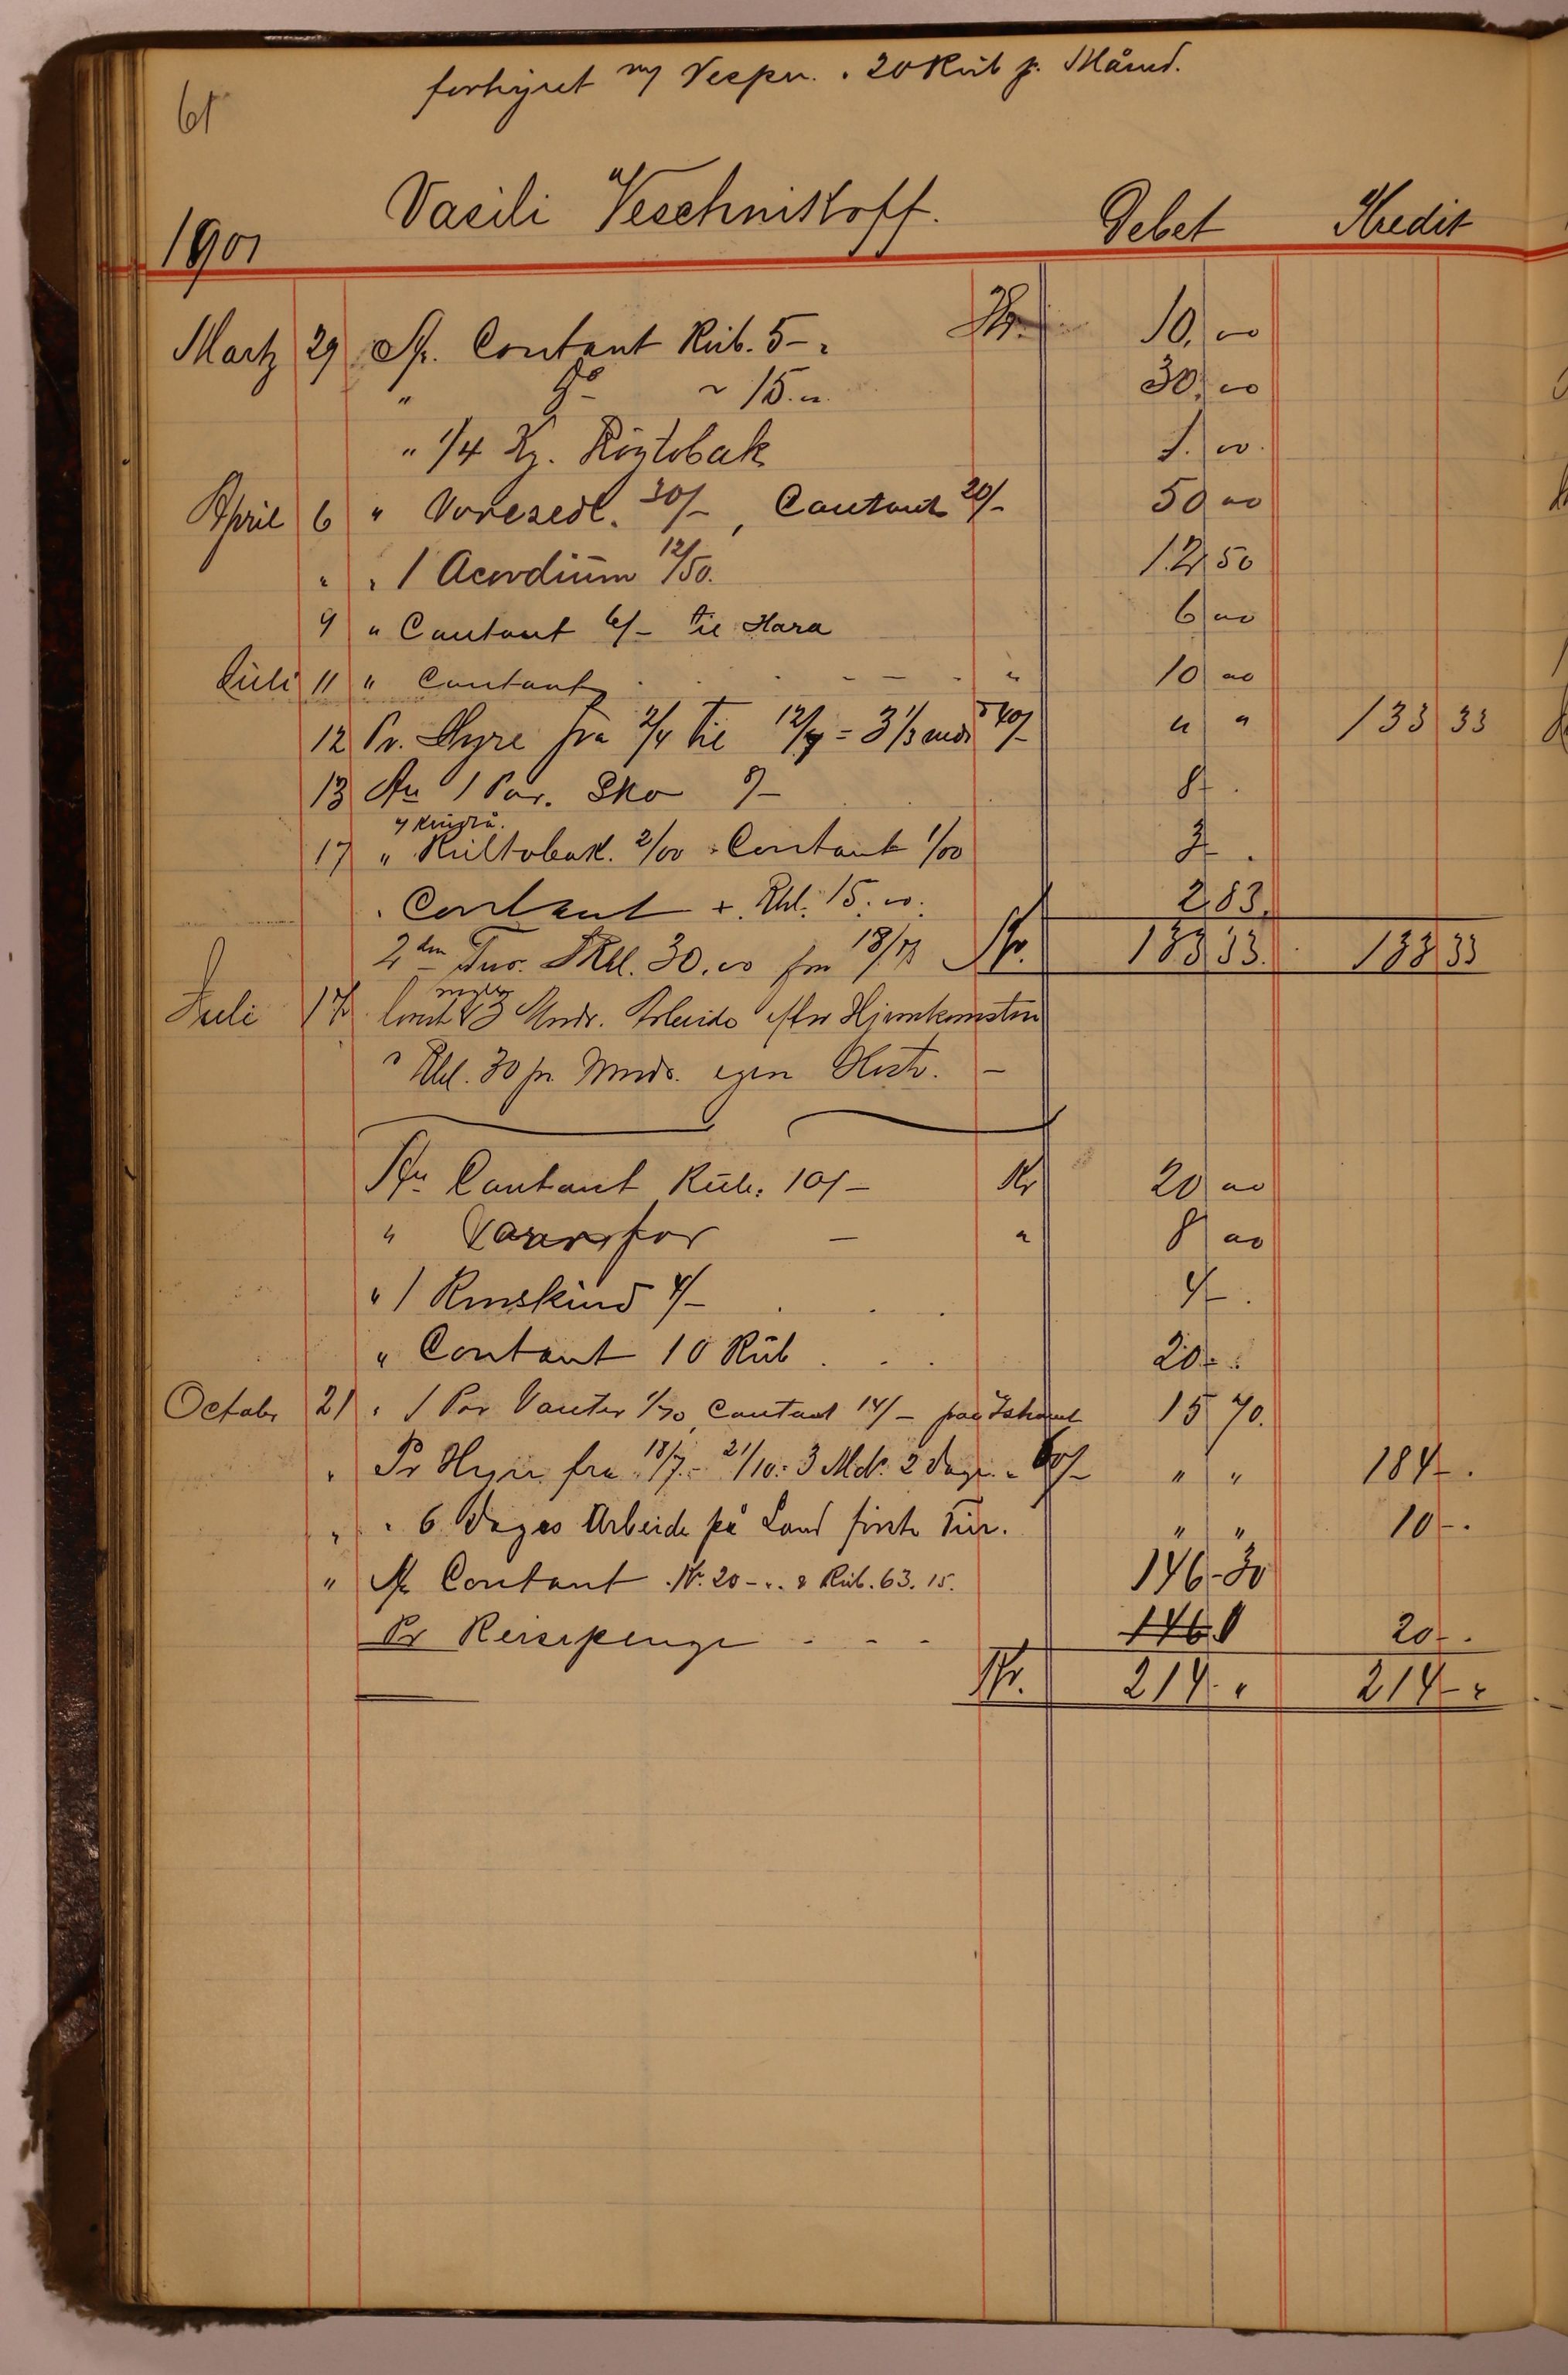 forhyret m/ Vespu. . 20 Rub p. Måned.
61
Vasili Veschnikoff.
1901 Debet Kredit
Martz 29 An. Contant Rub. 5-„ Kr. 10,00
„ do „ 15.00. 30,00
„ 1/4 Kg. Röгtobak 1.00.
April 6 „ Varesedl. 30/-, Contant 20/- 50 00
„ „ 1 Acordium 12/50. 12 50
9 „ Contant 6/- til Hara 6 00
Juli 11 „ Contant „ 10 00
12 Pr. Hyre fra 2/4 til 12/7 = 3 1/3 md à 40/- „ „ 133 33
13 An 1 Par. Sko 8/- 8 -.
17 „ Rultobak. 2/00 . Contant 1/00 3 -.
. Contant Rbl. 15.00. 2,83.
2den Tur. Rbl. 30.00 fra 18/7 Kr. 133 33. 133 33
Juli 17 3 Mndr. Arbeide efter Hjemkomsten
à Rbl. 30 pr. Mnd. egen Kost. -
An Contant Rub. 10/- Kr 20 00
„ - „ 8 00
„ 1 Renskind 4/- 4 -.
„ Contant 10 Rub . . . 20 -.
Octobr 21 „ 1 Par Vanter 1/70, Contant 14/- 15 70.
„ Pr Hyre fra 18/7 - 21/10 = 3 Mdr. 2 Dage à 60/- „ „ 184-.
„ „ 6 Dages Arbeide på Land förste Tur. „ „ 10-.
„ An Contant Kr. 20-„. & Rub. 63.15. 146-30
Pr Reisepenge . - - 146 20-.
Kr. 214-„ 214-„